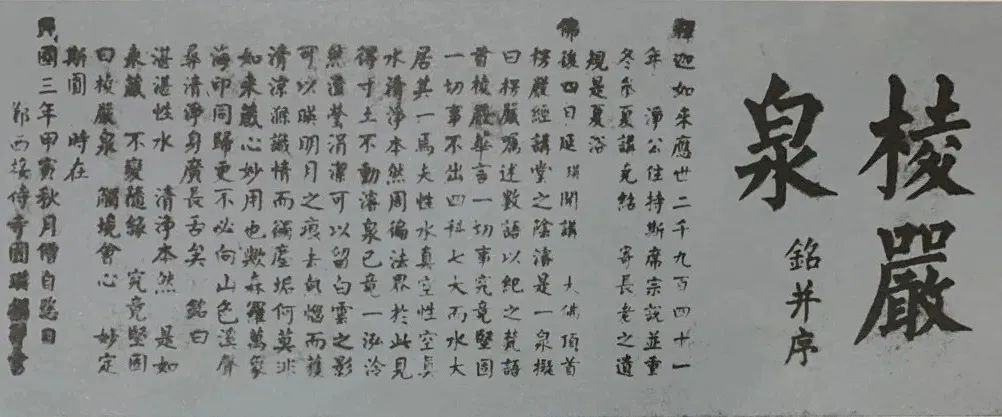 棱嚴
泉
銘并序
釋迦如來應世二千九百四十一
年 淨公住持斯席宗說並重
冬參夏講克結 寄長老之遺
規是夏浴
佛後四日延瑛開講 大佛頂首
楞嚴經講堂之陰濬是一泉擬
曰楞嚴囑述數語以紀之梵語
首棱嚴華言一切事究竟堅固
一切事不出四科七大而水大
居其一焉夫性水真空性空真
水清淨本然周徧法界於此見
得寸土不動濬泉已竟一泓泠
然澄瑩涓潔可以留白雲之影
可以暎明月之痕去惚而獲
清涼滌識情而塵垢何莫非
如來藏心妙用也歟森羅萬象
海印同歸更不必向山色溪聲
尋清淨身廣長舌矣 銘曰
湛湛性水 清淨本然 是如
來藏 不變隨緣 究竟堅固
曰棱嚴泉 觸境會心 妙定
斯圓 時在
民國三年甲寅秋月僧自恣日
鄞西接待寺圓瑛